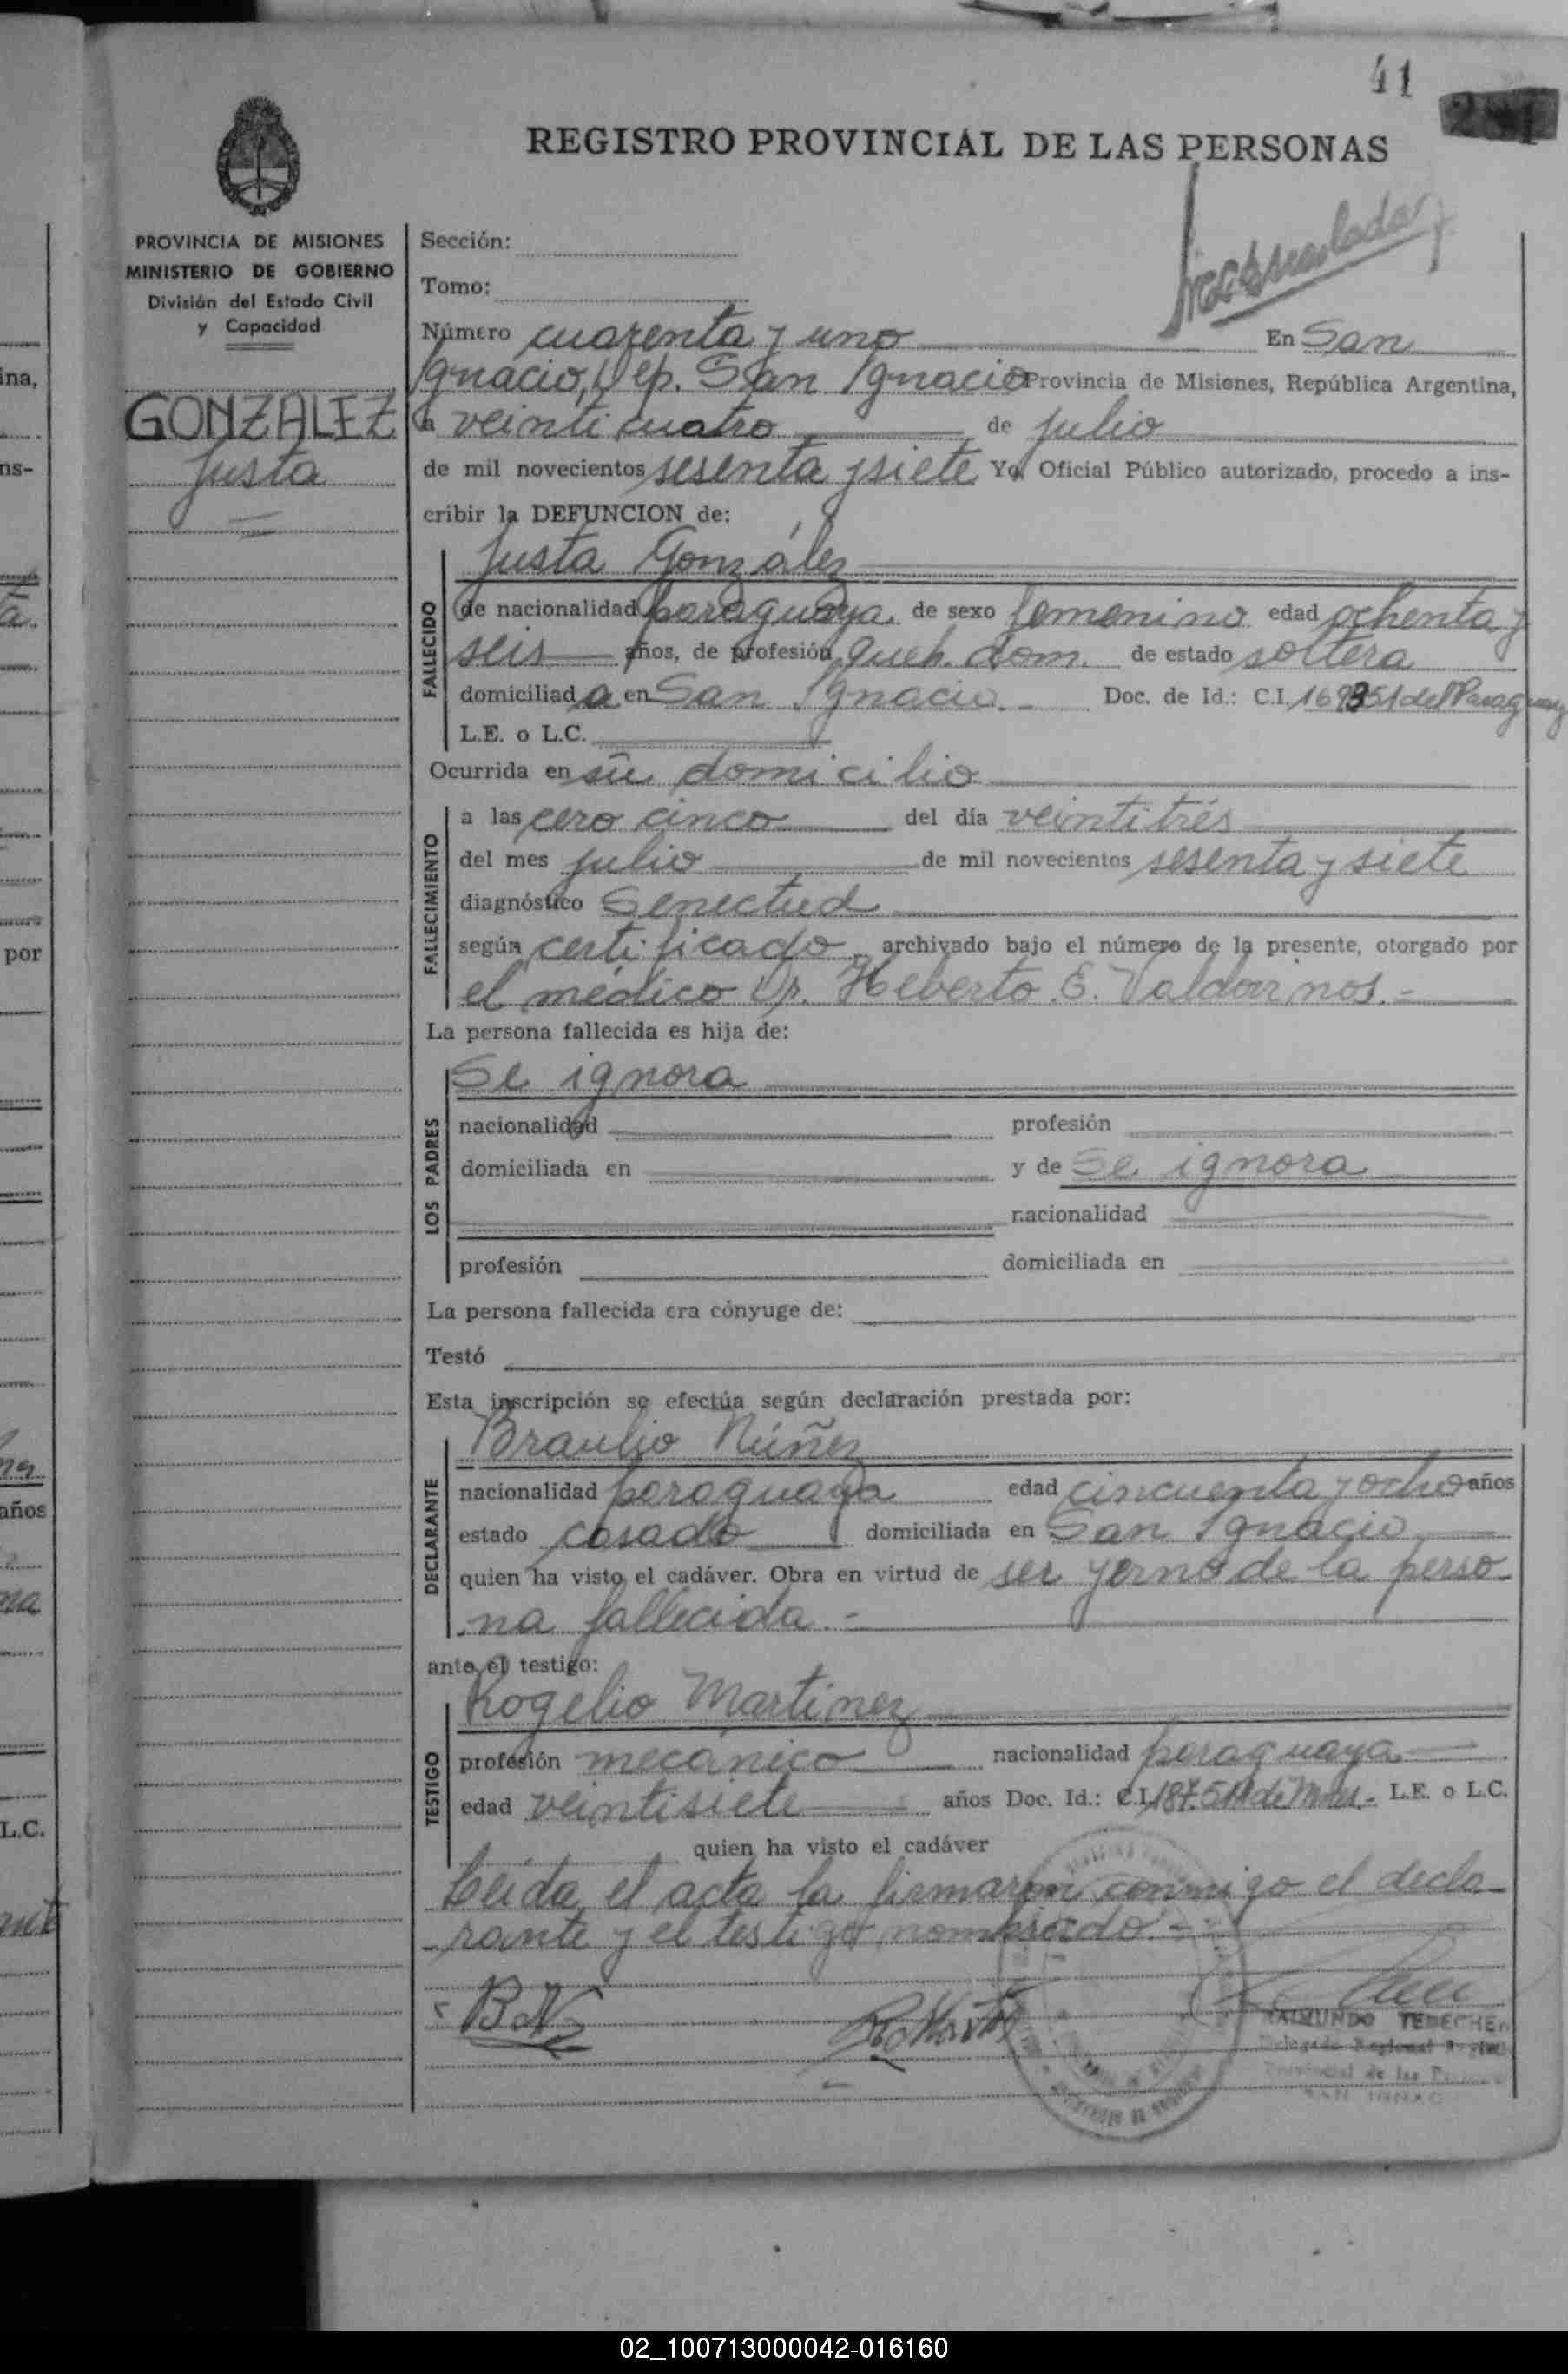 41
REGISTRO PROVINCIAL DE LAS PERSONAS
PROVINCIA DE MISIONES
MINISTERIO DE GOBIERNO
División del Estado Civil
y Capacidad
GONZALEZ
Justa
Sección:
Tomo:
Número cuarenta y uno En San
Ignacio, Dep. San Ignacio Provincia de Misiones, República Argentina,
a veinticuatro de julio
de mil novecientos sesenta y siete Yo, Oficial Público autorizado, procedo a ins-
cribir la DEFUNCION de:
FALLECIDO
Justa González
de nacionalidad paraguaya de sexo femenino edad ochenta y
seis años, de profesión queh. dom. de estado soltera
domiciliada en San Ignacio.- Doc. de Id.: C.I. del Paraguay
L.E. o L.C.
Ocurrida en su domicilio
FALLECIMIENTO
a las cero cinco del día veintitrés
del mes julio de mil novecientos sesenta y siete
diagnóstico Senectud
según certificado archivado bajo el número de la presente, otorgado por
el médico Dr. Heberto E. Valdovinos.-
La persona fallecida es hija de:
LOS PADRES
Se ignora
nacionalidad profesión
domiciliada en y de Se ignora
nacionalidad
profesión domiciliada en
La persona fallecida era cónyuge de:
Testó
Esta inscripción se efectúa según declaración prestada por:
DECLARANTE
Braulio Núñez
nacionalidad paraguaya edad cincuenta y ocho años
estado casado domiciliada en San Ignacio
quien ha visto el cadáver. Obra en virtud de ser yerno de la perso
na fallecida.-
ante el testigo:
TESTIGO
Rogelio Martinez
profesión mecánico nacionalidad paraguaya.
edad veintisiete años Doc. Id.: C.I. L.E. o L.C.
quien ha visto el cadáver
Leida el acta la firmaron conmigo el decla
rante y el testigo nombrado.-
RAIMUNDO
Delegado Regional
Provincial de las
SAN IGNAC
ina,
ns-
por
años
na
L.C.
02_100713000042-016160